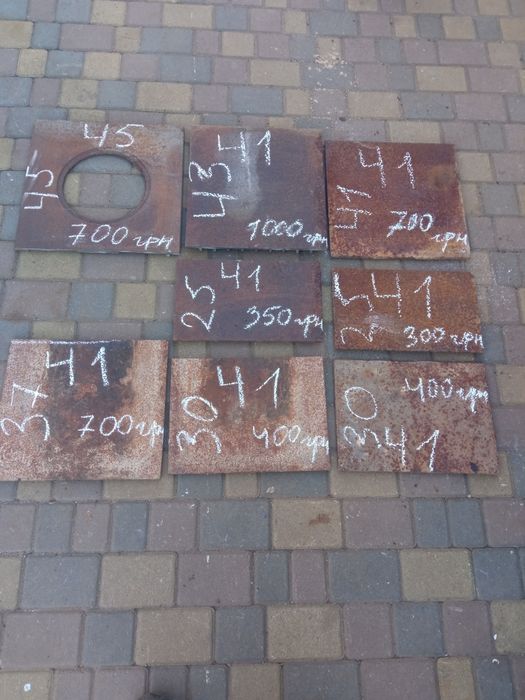 45
45
700 грн
41
43
1000 грн
41
41
700 грн
41
25
350 грн
41
25
300 грн
41
37
700 грн
41
30
400 грн
400 грн
30
41